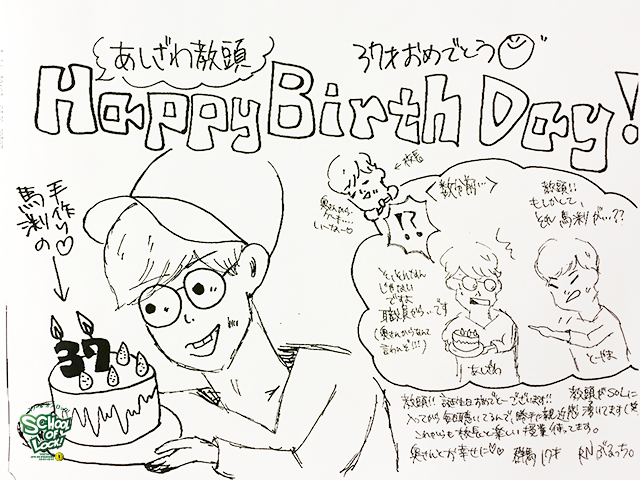 あしざわ教頭
37才おめでとう
Happy Birth Day!
手作り♡
馬渕の
37
←校長
奥さんから
ケーキ…
いーなー♡
!?
<数分前…>
教頭!!
もしかして、
それ 馬渕が…??
そ、そんなもん
じゃない
ですよ
職員からです
(奥さんからなんて
言わんぞ!!)
あしざわ
とーやま
教頭!! 誕生日おめでとーございます!! 教頭がSOLに
入ってから毎日聴いてるんで、勝手に親近感湧いてます(笑
これからも校長と楽しい授業待ってます。
奥さんとお幸せに♡♡ 群馬 17才 RN ぶまっち。
SCHOOL OF LOCK!